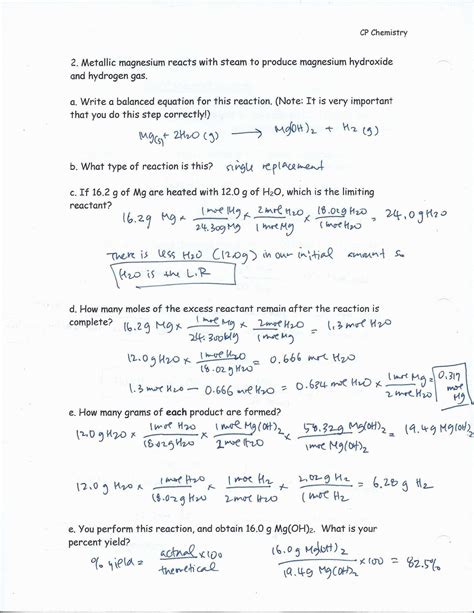 CP Chemistry
2. Metallic magnesium reacts with steam to produce magnesium hydroxide
and hydrogen gas.
a. Write a balanced equation for this reaction. (Note: It is very important
that you do this step correctly!)
Mg(s) + 2H₂O (g) → Mg(OH)₂ + H₂ (g)
b. What type of reaction is this? single replacement
c. If 16.2 g of Mg are heated with 12.0 g of H₂O, which is the limiting
reactant?
16.2g Mg × 1 mol Mg / 24.30g Mg × 2 mol H₂O / 1 mol Mg × 18.02g H₂O / 1 mol H₂O = 24.0 g H₂O
There is less H₂O (12.0g) in our initial amount so
H₂O is the L.R
d. How many moles of the excess reactant remain after the reaction is
complete? 16.2g Mg × 1 mol Mg / 24.30g Mg × 2 mol H₂O / 1 mol Mg = 1.3 mol H₂O
12.0g H₂O × 1 mol H₂O / 18.02g H₂O = 0.666 mol H₂O
1.3 mol H₂O - 0.666 mol H₂O = 0.634 mol H₂O × 1 mol Mg / 2 mol H₂O = 0.317 mol Mg
e. How many grams of each product are formed?
12.0 g H₂O × 1 mol H₂O / 18.02g H₂O × 1 mol Mg(OH)₂ / 2 mol H₂O × 58.32g Mg(OH)₂ / 1 mol Mg(OH)₂ = 19.4g Mg(OH)₂
12.0 g H₂O × 1 mol H₂O / 18.02g H₂O × 1 mol H₂ / 2 mol H₂O × 2.02g H₂ / 1 mol H₂ = 6.28 g H₂
e. You perform this reaction, and obtain 16.0 g Mg(OH)₂. What is your
percent yield?
% yield = actual / theoretical × 100
16.0 g Mg(OH)₂ / 19.4g Mg(OH)₂ × 100 = 82.5%